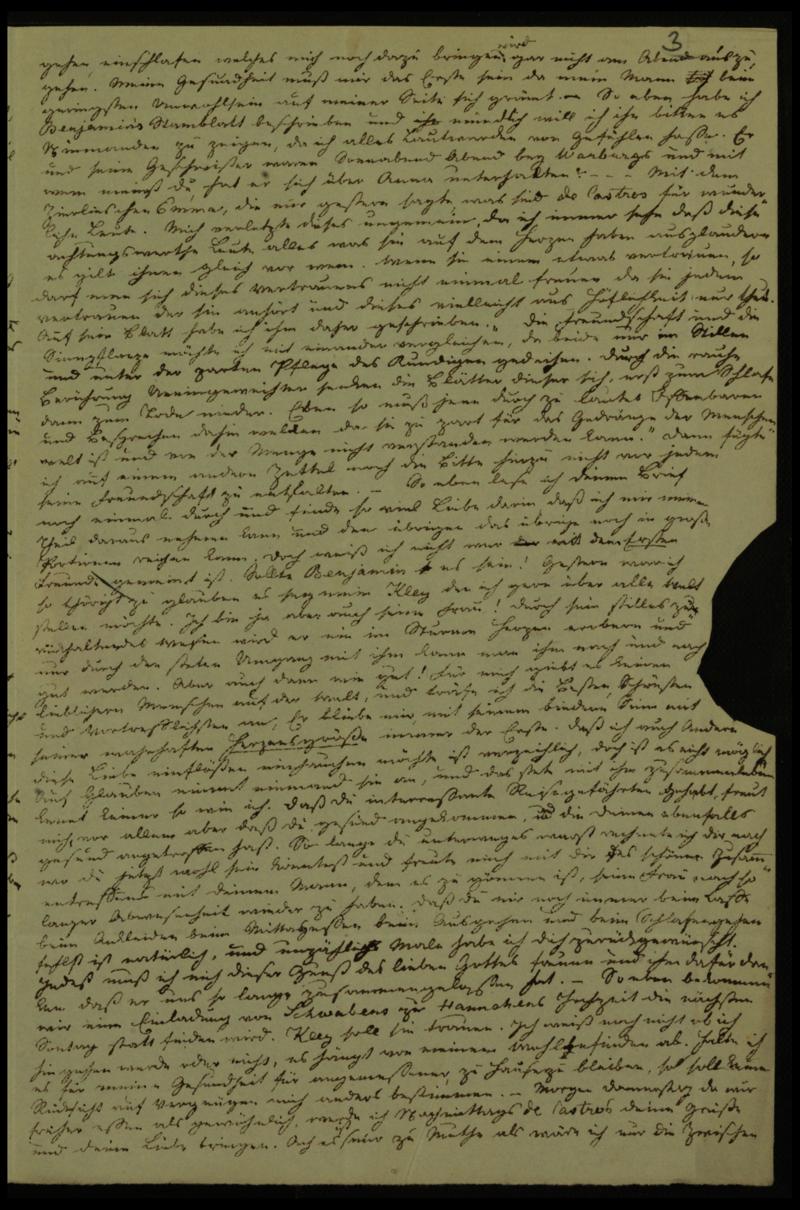 3
gehen, einschlafen welches mich noch dazu bringen wird gar nicht am Abend auszu
gehen. Meine Gesundheit muß mir das Erste sein da mein Mann beim
geringsten Unwohlsein auf meiner Seite sich grämt. – So eben habe ich
Benjamins Stamblatt beschrieben und mündlich will ich ihn bitten es
Niemanden zu zeigen, da ich alles Lautwerden von Gefühlen hasse. Er
und seine Geschwister waren Sonnabend Abend bey Warburgs und mit
wem meinst du hat er sich über Anna unterhalten? - - - Mit dem
Zierlinchen Emma, die mir gestern sagte was sind de Castros für wunder
liche Leute. Mich verletzte dieses ungemein, da ich immer sehe daß diese
achtungswerthe Leute alles was sie auf dem Herzen haben ausplaudern
es gilt ihnen gleich vor wem. Wenn sie einem etwas vertrauen, so
darf man sich dieses Vertrauens nicht einmal freuen da sie jedem
vertrauen der sie anhört und dieses vielleicht aus Höflichkeit nur thut.
Auf sein Blatt habe ich ihm daher geschrieben. „Die Freundschaft und die
Sinnpflanze möchte ich mit einander vergleichen, da beide nur im Stillen
und unter der zarten Pflege des Kundigen gedeihen. Durch die rauhe
Berührung Uneingeweihter senken die Blätter dieser sich, erst zum Schlafe
dann zum Tode nieder. Eben so muß jene durch zu lautes Offenbaren
und Besprechen dahin welken da sie zu zart für das Gedränge der Menschen
welt ist und von der Menge nicht verstanden werden kann." Dann fügte
ich auf einem andern Zettel noch die Bitte hinzu nicht vor jedem
seine Freundschaft zu entfalten. – So eben lese ich deinen Brief
noch einmal durch und finde so viel Liebe darin daß ich mir meinen
Theil daraus nehmen kann und den übrigen das übrige noch in große
Portionen reichen kann. Doch weiß ich nicht wer mit dem Ersten
Freunde gemeint ist. Sollte Benjamin es sein! Gestern war ich
so thöricht zu glauben es sey mein Kley den ich gern über alle Welt
stellen möchte. Ich bin ja aber auch seine Frau! Durch sein stilles zu
rückhaltendes Wesen wird er nie im Sturme Herzen erobern und
nur durch den steten Umgang mit ihm kann man ihm nach und nach
gut werden. Aber auch dann wie gut! Für mich giebt es keinen
lieblichern Menschen auf der Welt, und träfe ich die Besten, Schönsten
und Vortrefflichsten an, Er bliebe mir mit seinem biedern Sinn mit
seiner wahrhaften Herzensgröße immer der Erste. Daß ich auch Andern
diese Liebe einflößen möchte ist verzeihlich, doch ist es nicht möglich
Auf Glauben nimmt niemand sie an, und das stete mit ihm Zusammenleben
kennt keiner so wie ich. Daß du interressante Reisegefährten gehabt, freut
mich, vor allem aber daß du gesund angekommen, und die Deinen ebenfalls
gesund angetroffen hast. So lange du unterweges warst rechnete ich dir nach
wo du jetzt wohl sein könntest und freute mich mit dir des schönen Zusamm
entreffens mit deinem Manne, dem es zu gönnen ist, seine Frau nach so
langer Abwesenheit wieder zu haben. Daß du mir noch immer beim Caffe
beim Ankleiden beim Mittagessen beim Ausgehen und beim Schlafengehen
fehlst ist natürlich, und unzählige Male habe ich dich zurückgewünscht.
Indeß muß ich mich dieser Gunst des lieben Gottes freuen und ihm dafür dan
ken daß er uns so lange zusammengelassen hat. – So eben bekommen
wir eine Einladung von Schwabens zur Hannchens Hochzeit die nächsten
Sontag statt finden wird. Kley soll sie trauen. Ich weiß noch nicht ob ich
hin gehen werde oder nicht, es hängt von meinem Wohlbefinden ab. Halte ich
es für meine Gesundheit für angemessener zu Hause zu bleiben, so soll keine
Rücksicht auf Vergnügen mich anders bestimmen. – Morgen Donnerstag da wir
früher essen als gewöhnlich, werde ich Nachmittags de Castros deine Grüße
und deine Liebe bringen. Ach es ist mir zu Muthe als wäre ich nur die Zwischen